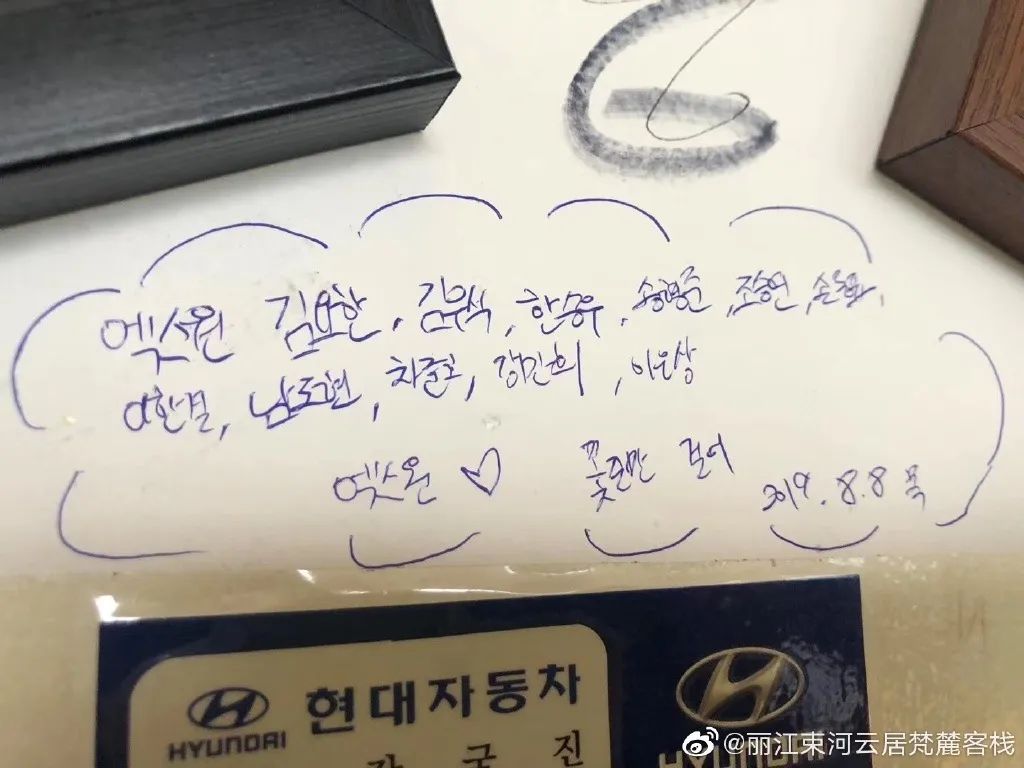 엑스원 김요한, 김우석, 한승우, 송형준, 조승연, 손동표,
이한결, 남도현, 차준호, 강민희, 이은상
엑스원 ♡ 꽃길만 걸어 2019. 8. 8 목
HYUNDAI 현대자동차
국 진
HYUNDAI
@丽江束河云居梵麓客栈